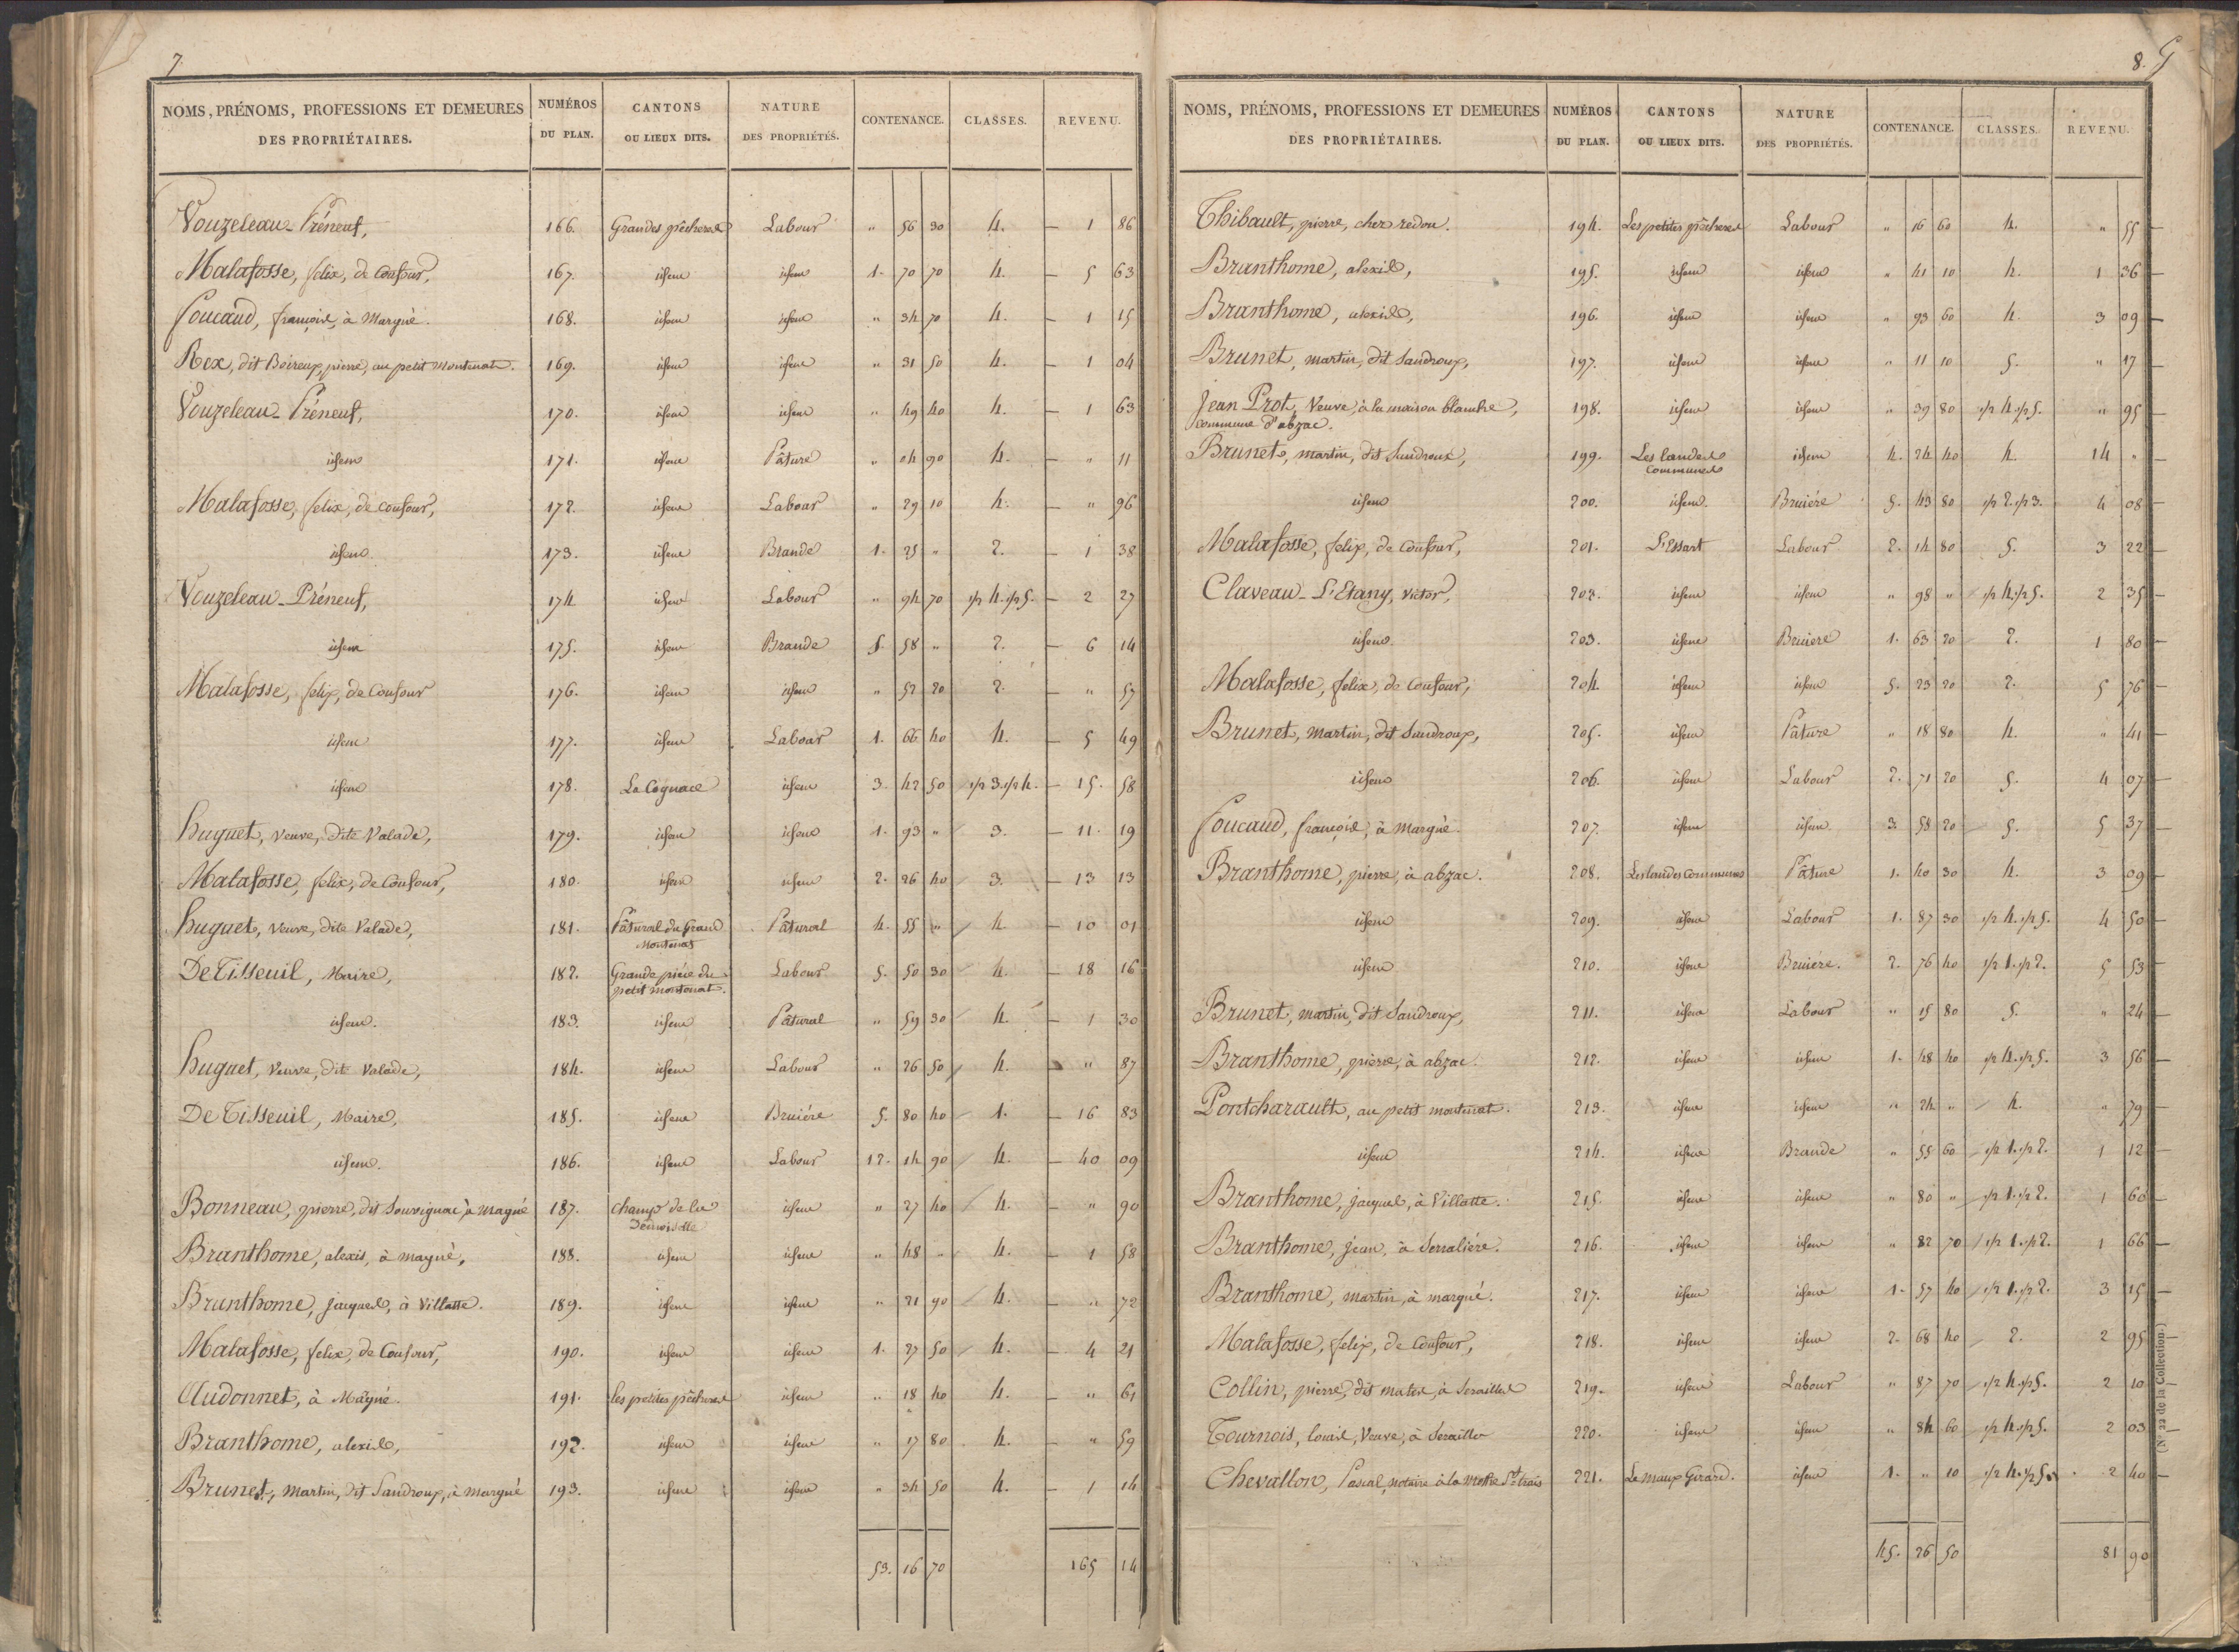 7.
NOMS, PRÉNOMS, PROFESSIONS ET DEMEURES DES PROPRIÉTAIRES. NUMÉROS DU PLAN. CANTONS OU LIEUX DITS. NATURE DES PROPRIÉTÉS. CONTENANCE. CLASSES. REVENU.
Vouzeleau-Préneuf, 166. Grandes pêcheres Labour " 56 30 4. 1 86
Malafosse, felix, de Confour, 167. idem idem 1. 70 70 4. 5 63
Foucaud, françois, à Margné. 168. idem idem " 34 70 4. 1 15
Rex, dit Boireux, pierre, au petit Montenat. 169. idem idem " 31 50 4. 1 04
Vouzeleau-Préneuf, 170. idem idem " 49 40 4. 1 63
idem 171. idem Pâture " 04 90 4. " 11
Malafosse, felix, de Confour, 172. idem Labour " 29 10 4. " 96
idem 173. idem Brande 1. 25 " 2. 1 38
Vouzeleau-Préneuf, 174 idem Labour " 94 70 1/2 4. 1/2 5. 2 27
idem 175. idem Brande 5. 58 " 2. 6 14
Malafosse, felix, de Confour 176. idem idem " 52 20 2. " 57
idem 177. idem Labour 1. 66 40 4. 5 49
idem 178. La Cognace idem 3. 42 50 1/2 3. 1/2 4. 15. 58
huguet, veuve, dite Valade, 179. idem idem 1. 93 " 3. 11. 19
Malafosse, felix, de Confour, 180. idem idem 2. 26 40 3. 13 13
huguet, veuve, dite Valade, 181. Pâtural du Grand Montenat Pâtural 4. 55 " 4 10 01
De Tisseuil, Maire, 182. Grande pièce du petit montenat. Labour 5. 50 30 4. 18 16
idem. 183. idem Pâtural " 59 30 4. 1 30
huguet, veuve, dite Valade, 184. idem Labour " 26 50 4. " 87
De Tisseuil, Maire, 185. idem Bruiére 5. 80 40 1. 16 83
idem. 186. idem Labour 12. 14 90 4. 40 09
Bonneau, pierre, dit Souvignac à Magné 187. champ de la Demoiselle idem " 27 40 4. " 90
Branthome, alexis, à magné, 188. idem idem " 48 " 4. 1 58
Branthome, jacques, à Villatte. 189. idem idem " 21 90 4. " 72
Malafosse, felix, de Confour, 190. idem idem 1. 27 50 4. 4 21
Audonnet, à Magné. 191. les petites pêcheres idem " 18 40 4. " 61
Branthome, alexis, 192. idem idem " 17 80 4. " 59
Brunet, martin, dit Sandroux, à Margné 193. idem idem " 34 50 4. 1 14
53. 16 70 165 14
8.
NOMS, PRÉNOMS, PROFESSIONS ET DEMEURES DES PROPRIÉTAIRES. NUMÉROS DU PLAN. CANTONS OU LIEUX DITS. NATURE DES PROPRIÉTÉS. CONTENANCE. CLASSES. REVENU.
Thibault, pierre, chez redon. 194. Les petites pêcheres Labour " 16 60 4. " 55
Branthome, alexis, 195. idem idem " 41 10 4. 1 36
Branthome, alexis, 196. idem idem " 93 60 4. 3 09
Brunet, martin, dit Sandroux, 197. idem idem " 11 10 5. " 17
Jean Prot, Veuve, à la maison blanche, commune d'abzac. 198. idem idem " 39 80 1/2 4. 1/2 5. " 95
Brunet, martin, dit Sandroux, 199. Les landes Communes idem 4. 24 40 4. 14 "
idem 200. idem. Bruiére 5. 43 80 1/2 2. 1/2 3. 4 08
Malafosse, felix, de Confour, 201. L'Essart Labour 2. 14 80 5. 3 22
Claveau-L'Etang, Victor, 202. idem idem " 98 " 1/2 4. 1/2 5. 2 35
idem 203. idem Bruiere 1. 63 20 2. 1 80
Malafosse, felix, de Confour, 204. idem idem 5. 23 20 2. 5 76
Brunet, martin, dit Sandroux, 205. idem Pâture " 18 80 4. " 41
idem 206. idem Labour 2. 71 20 5. 4 07
Foucaud, françois, à Margné. 207. idem idem 3. 58 20 5. 5 37
Branthome, pierre, à abzac. 208. Les landes communes Pâture 1. 40 30 4. 3 09
idem 209. idem Labour 1. 87 30 1/2 4. 1/2 5. 4 50
idem 210. idem Bruiére. 2. 76 40 1/2 1. 1/2 2. 5 53
Brunet, martin, dit Sandroux, 211. idem Labour " 15 80 5. " 24
Branthome, pierre, à abzac. 212. idem idem 1. 48 40 1/2 4. 1/2 5. 3 56
Pontcharault, au petit montenat. 213. idem idem " 24 " 4. " 79
idem 214. idem Brande " 55 60 1/2 1. 1/2 2. 1 12
Branthome, jacques, à Villatte. 215. idem idem " 80 " 1/2 1. 1/2 2. 1 60
Branthome, jean, à Serraliére. 216. idem idem " 82 70 1/2 1. 1/2 2. 1 66
Branthome, martin, à margné. 217. idem idem 1. 57 40 1/2 1. 1/2 2. 3 15
Malafosse, felix, de Confour, 218. idem idem 2. 68 40 2. 2 95
Collin, pierre, dit 219. idem Labour " 87 70 1/2 4. 1/2 5. 2 10
Tournois, louis, Veuve, à 220. idem idem " 84 60 1/2 4. 1/2 5. 2 03
Chevallon, Pascal, notaire à la 221. Le maux Girard. idem 1. " 10 1/2 4. 1/2 5. 2 40
45. 26 50 81 90
(N° 22 de la Collection.)